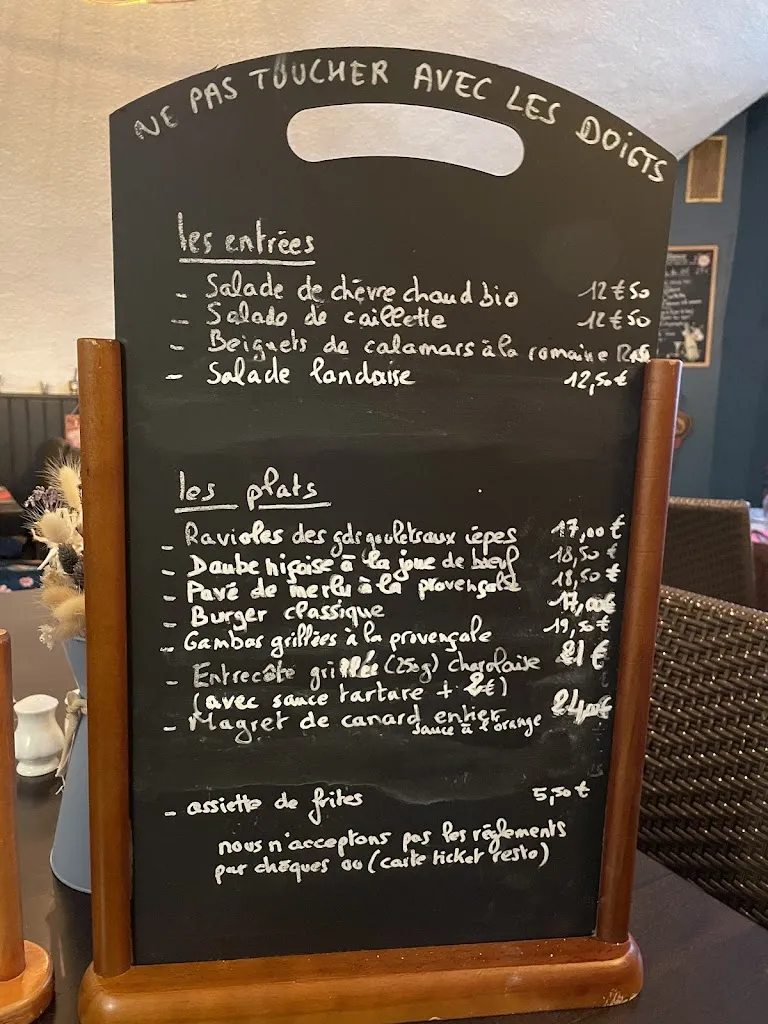 NE PAS TOUCHER AVEC LES DOIGTS
les entrées
- Salade de chèvre chaud bio 12€50
- Salade de caillette 12€50
- Beignets de calamars à la romaine
- Salade landaise 12,50€
les plats
- Ravioles des gds goulets aux cèpes 17,00€
- Daube niçoise à la joue de bœuf 18,50€
- Pavé de merlu à la provençale 18,50€
- Burger classique 17,00€
- Gambas grillées à la provençale 19,50€
- Entrecôte grillée (250g) charolaise 21€
(avec sauce tartare + 2€)
- Magret de canard entier 24,00€
sauce à l'orange
- assiette de frites 5,50€
nous n'acceptons pas les règlements
par chèques ou (carte ticket resto)